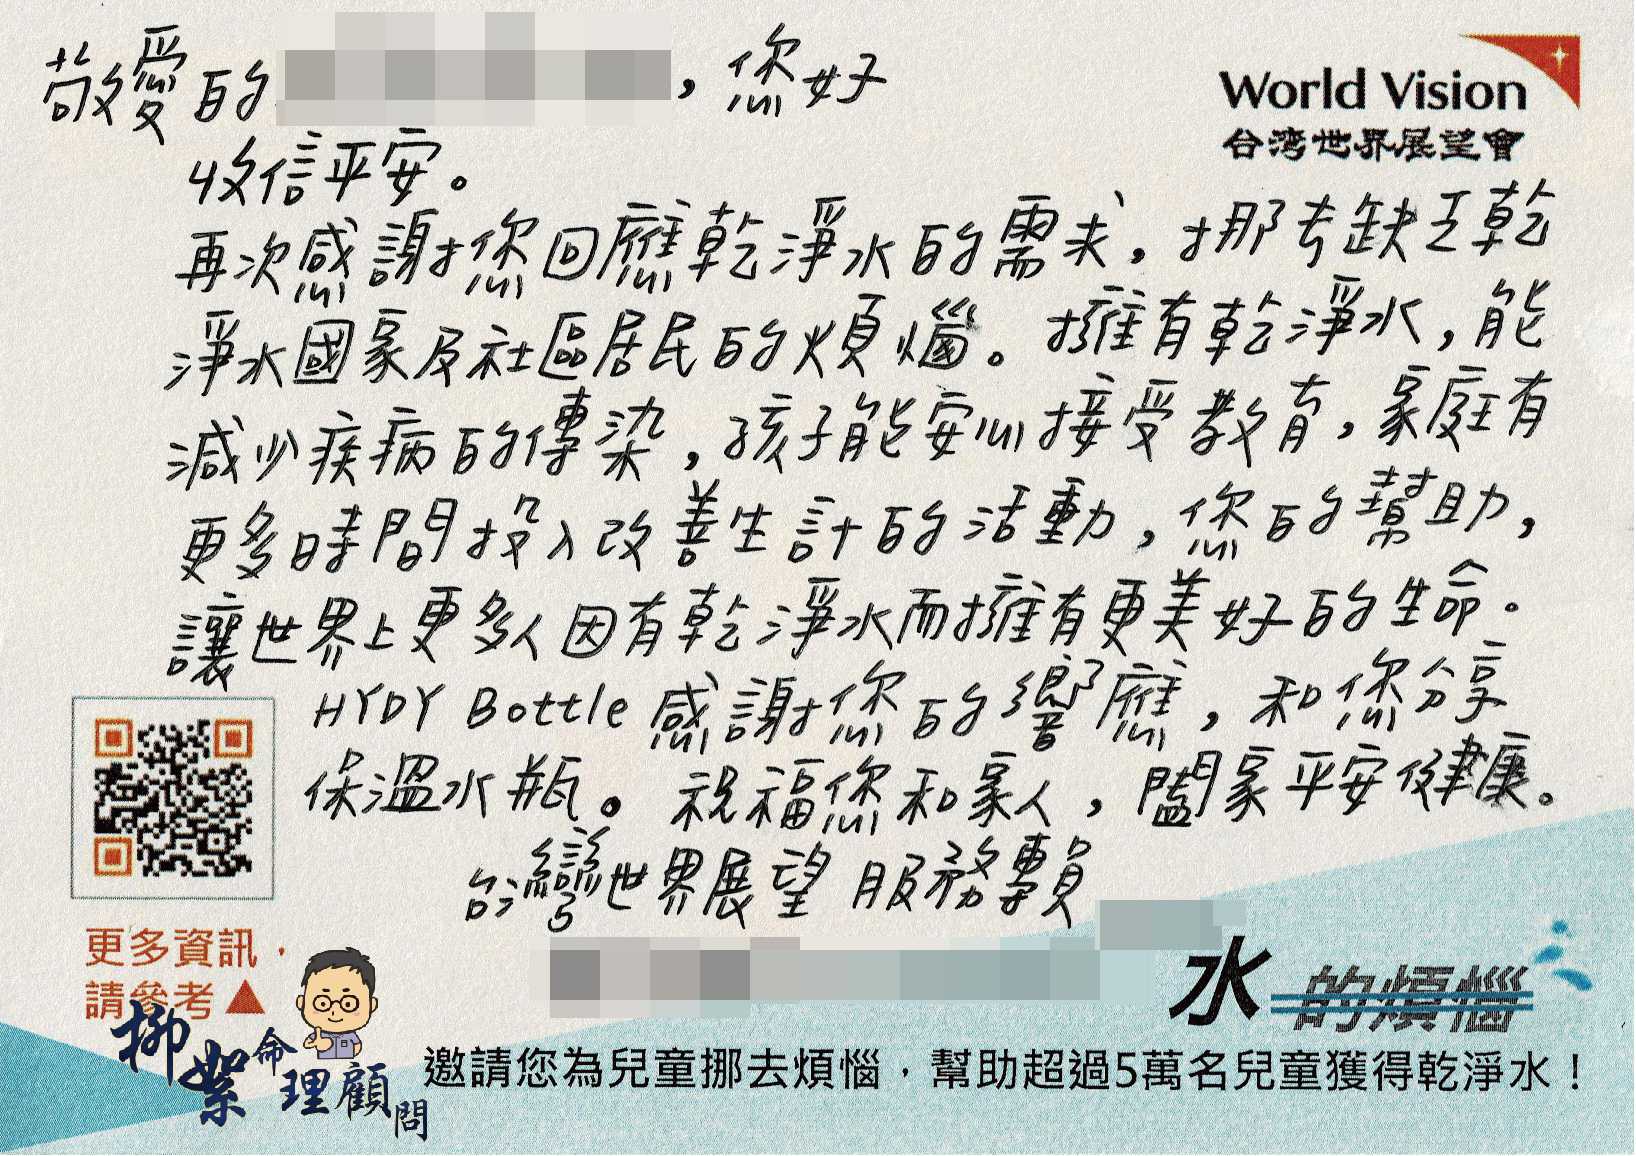 敬愛的
，您好
World Vision
台湾世界展望會
收信平安。
再次感謝您回應乾淨水的需求，挪去缺乏乾
淨水國家及社區居民的煩惱。擁有乾淨水，能
減少疾病的傳染，孩子能安心接受教育，家庭有
更多時間投入改善生計的活動，您的幫助，
讓世界上更多人因有乾淨水而擁有更美好的生命。
HYDY Bottle 感謝您的響應，和您分享
保溫水瓶。祝福您和家人，闔家平安健康。
台灣世界展望 服務專員
更多資訊，
請參考▲
水的煩惱
柳絮命理顧問
邀請您為兒童挪去煩惱，幫助超過5萬名兒童獲得乾淨水！